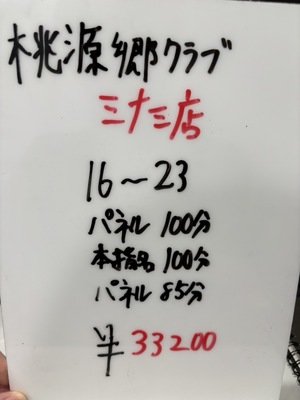 桃源郷クラブ
三十三店
16～23
パネル 100分
本指名 100分
パネル 85分
半 33200